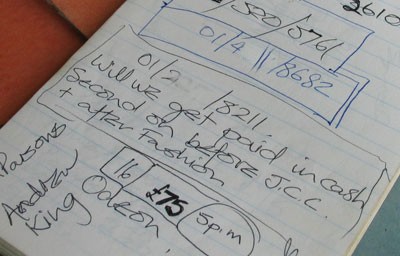 2610
520/5761
01/4 8682
01/2 /8211
Will we get paid in cash
Second on before J.C.C.
+ after Fashion
16 £75 5pm
Odeon
Parsons
Andrew
King